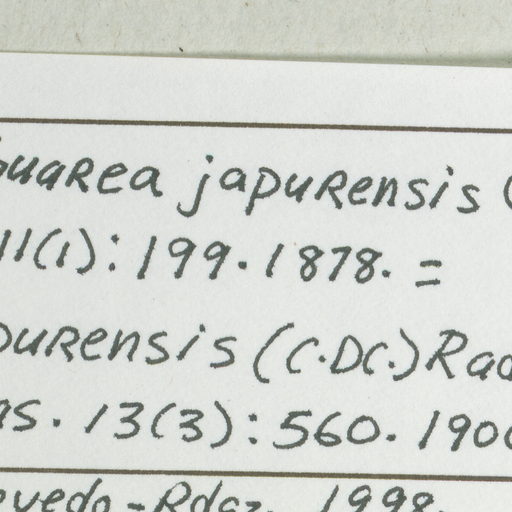 Guarea japurensis (
11(1): 199. 1878. =
purensis (C.DC.) Rad
as. 13(3): 560. 190
evedo-Rdgz. 1998.